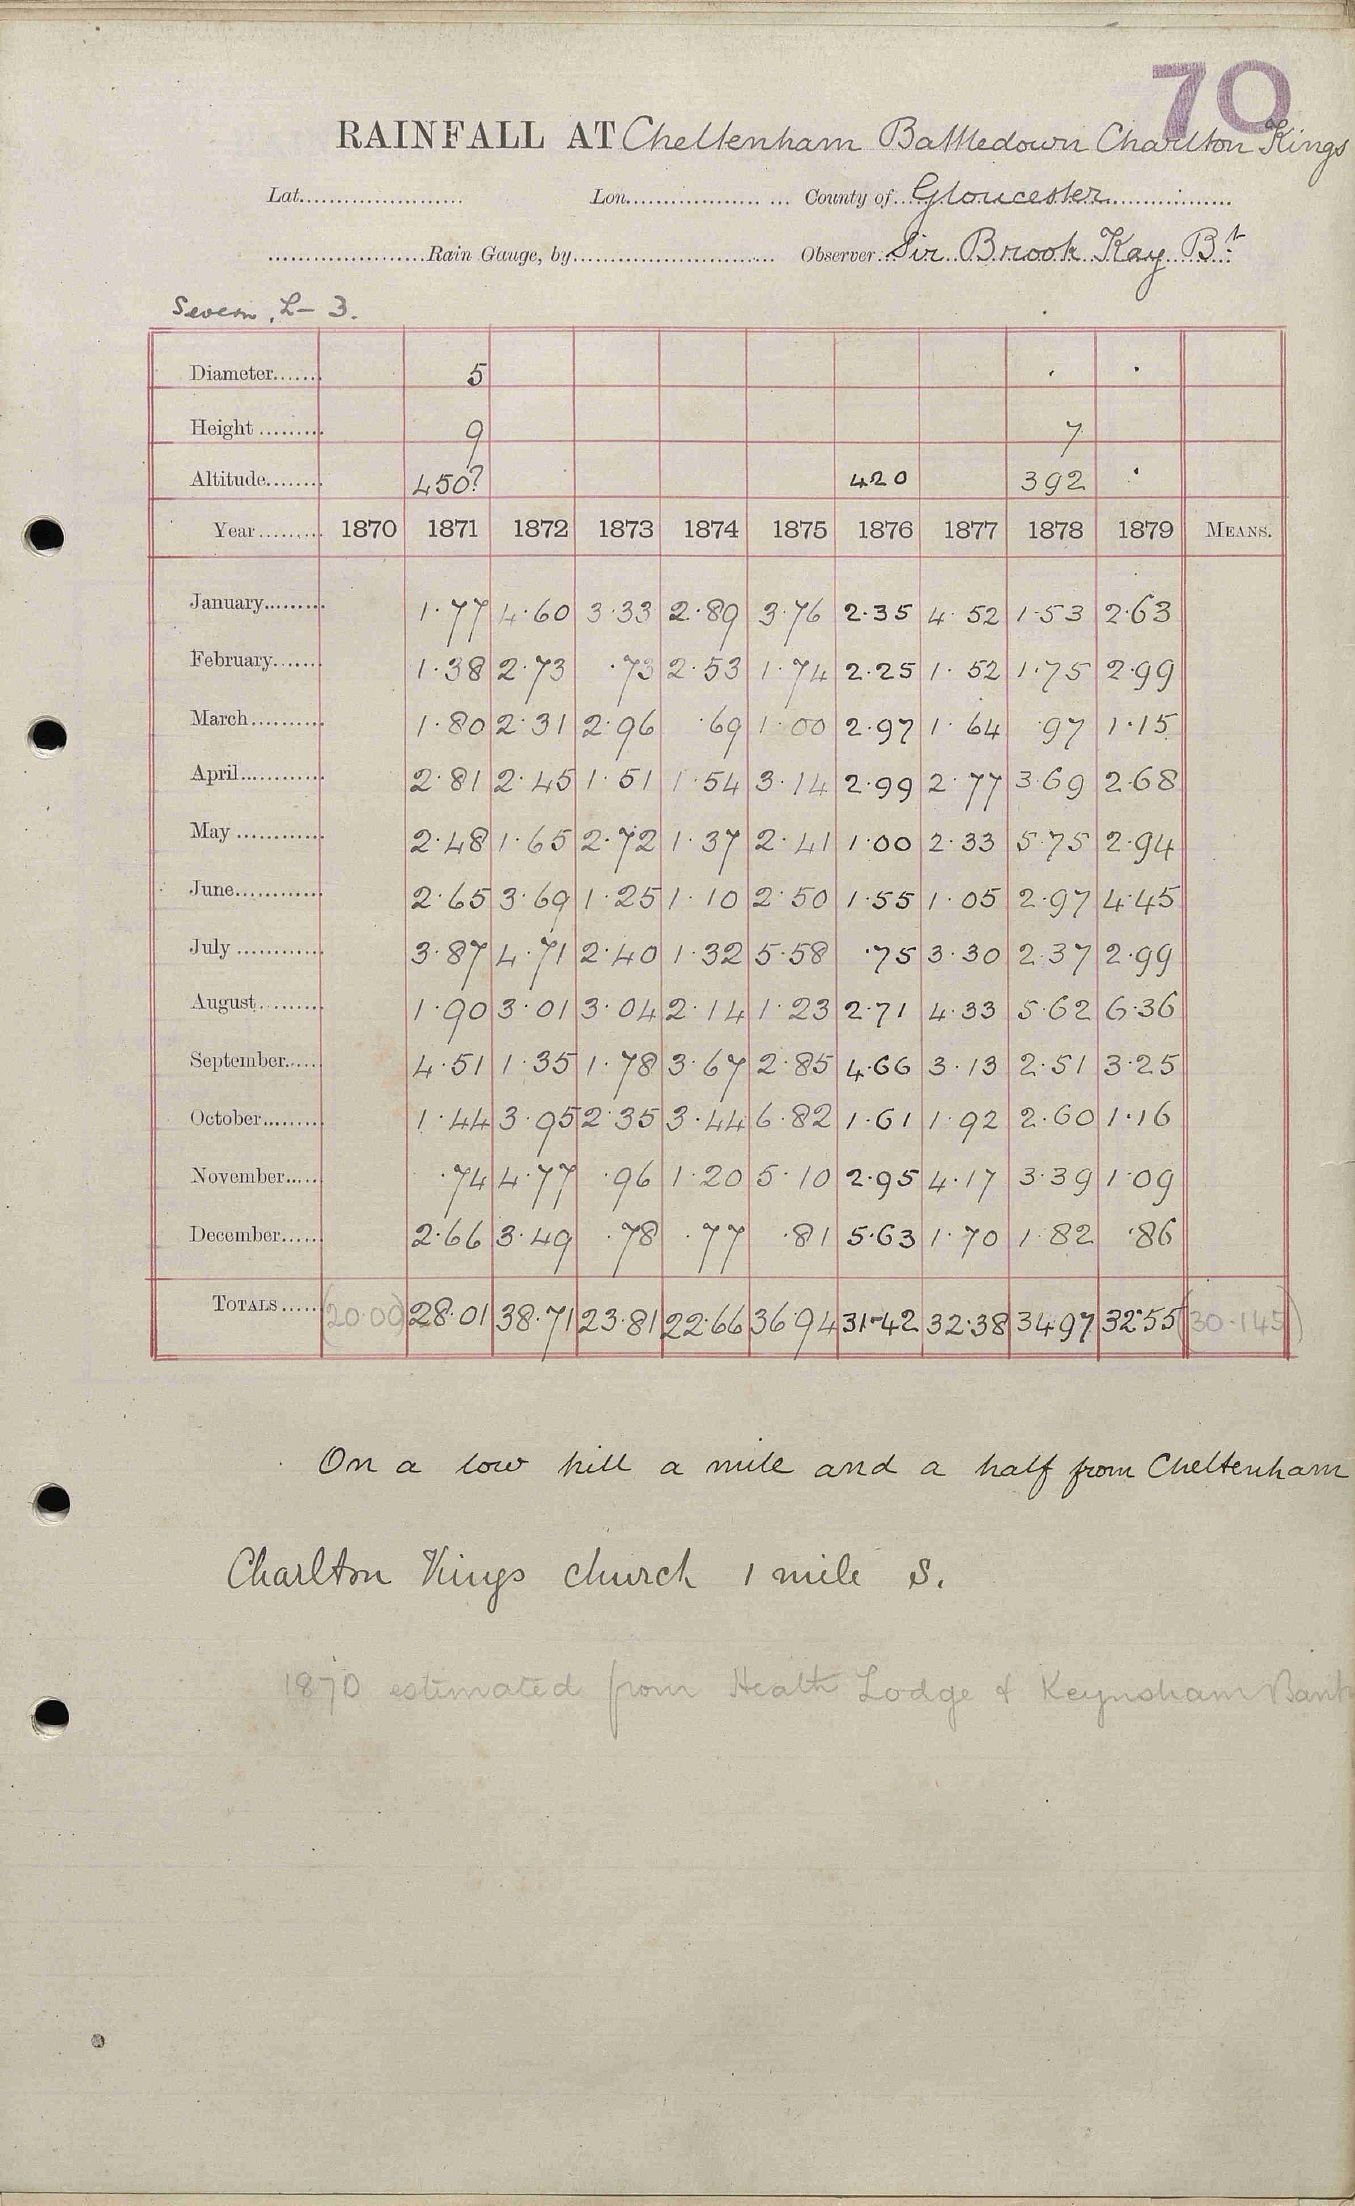 70
RAINFALL AT Cheltenham Battledown Charlton Kings
Lat. Lon. County of Gloucester
Rain Gauge, by Observer Sir Brook Kay Bt
Severn, L- 3.
Diameter 5 · ·
Height 9 7
Altitude 450? 420 392 ·
Year 1870 1871 1872 1873 1874 1875 1876 1877 1878 1879 MEANS.
January 1.77 4.60 3.33 2.89 3.76 2.35 4.52 1.53 2.63
February 1.38 2.73 .73 2.53 1.74 2.25 1.52 1.75 2.99
March 1.80 2.31 2.96 .69 1.00 2.97 1.64 .97 1.15
April 2.81 2.45 1.51 1.54 3.14 2.99 2.77 3.69 2.68
May 2.48 1.65 2.72 1.37 2.41 1.00 2.33 5.75 2.94
June 2.65 3.69 1.25 1.10 2.50 1.55 1.05 2.97 4.45
July 3.87 4.71 2.40 1.32 5.58 .75 3.30 2.37 2.99
August 1.90 3.01 3.04 2.14 1.23 2.71 4.33 5.62 6.36
September 4.51 1.35 1.78 3.67 2.85 4.66 3.13 2.51 3.25
October 1.44 3.95 2.35 3.44 6.82 1.61 1.92 2.60 1.16
November .74 4.77 .96 1.20 5.10 2.95 4.17 3.39 1.09
December 2.66 3.49 .78 .77 .81 5.63 1.70 1.82 .86
TOTALS (20.00) 28.01 38.71 23.81 22.66 36.94 31.42 32.38 34.97 32.55 (30.145)
On a low hill a mile and a half from Cheltenham
Charlton Kings church 1 mile S.
1870 estimated from Heath Lodge & Keynsham Bank